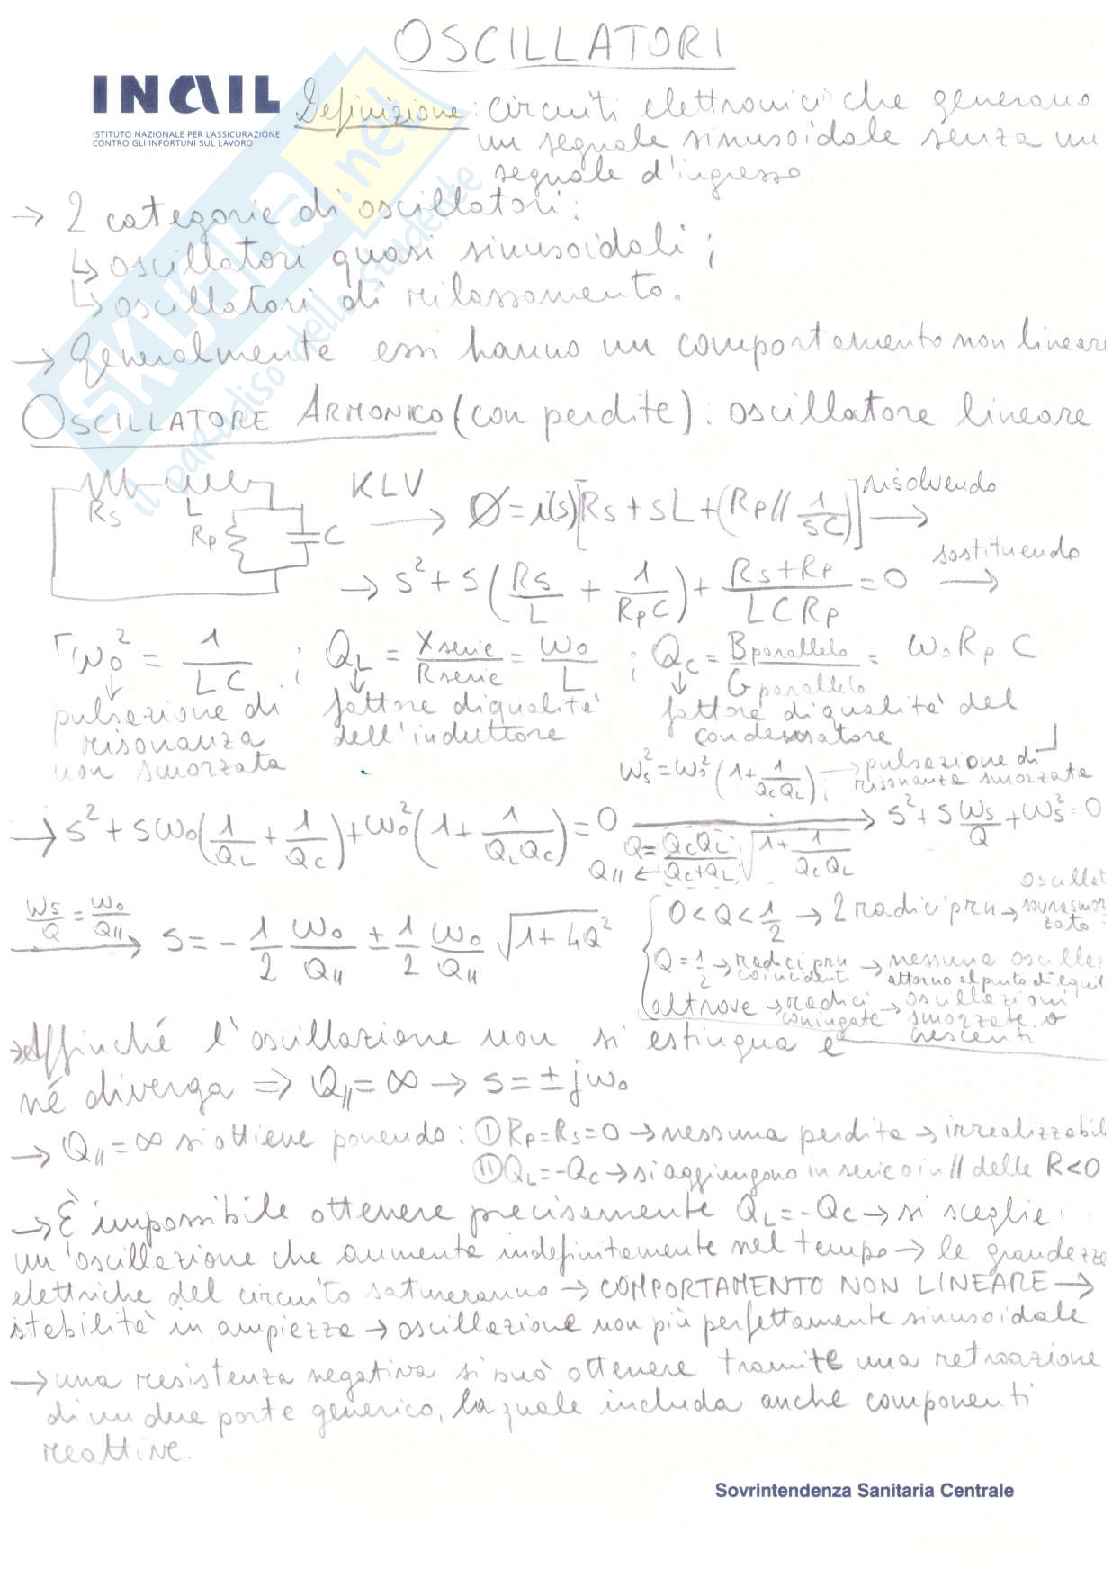 OSCILLATORI
INAIL
ISTITUTO NAZIONALE PER L'ASSICURAZIONE
CONTRO GLI INFORTUNI SUL LAVORO
Definizione: circuiti elettronici che generano
un segnale sinusoidale senza un
segnale d'ingresso
→ 2 categorie di oscillatori:
↳ oscillatori quasi sinusoidali;
↳ oscillatori di rilassamento.
→ Generalmente essi hanno un comportamento non lineare
OSCILLATORE ARMONICO (con perdite): oscillatore lineare
SKUOLA.net
il paradiso dello studente
Rs L Rp C
KLV → Ø = i(s)[Rs + sL + (Rp // 1/sC)] risolvendo →
→ s² + s(Rs/L + 1/RpC) + (Rs+Rp)/(LCRp) = 0 sostituendo →
ω₀² = 1/LC ; Q_L = Xserie/Rserie = ω₀/L ; Q_C = Bparallelo/Gparallelo = ω₀RpC
pulsazione di risonanza non smorzata
fattore di qualità dell'induttore
fattore di qualità del condensatore
ωs² = ω₀²(1 + 1/QcQL) → pulsazione di risonanza smorzata
→ s² + sω₀(1/QL + 1/Qc) + ω₀²(1 + 1/QLQc) = 0 → s² + s ωs/Q + ωs² = 0
Q = QcQL/(Qc+QL) √(1 + 1/QcQL)
Q// ←
ωs/Q = ω₀/Q// → s = -1/2 ω₀/Q// ± 1/2 ω₀/Q// √(1+4Q²)
0<Q<1/2 → 2 radici prn → oscillat sovrasmorzato
Q=1/2 → radici prn coincidenti → nessuna oscillaz attorno al punto di equil
altrove → radici coniugate → oscillazioni smorzate o crescenti
→ Affinché l'oscillazione non si estingua e
né diverga ⇒ Q// = ∞ → s = ±jω₀
→ Q// = ∞ si ottiene ponendo: Ⓘ Rp=Rs=0 → nessuna perdita → irrealizzabil
Ⓘ Ⓘ QL=-Qc → si aggiungono in serie o in // delle R<0
→ È impossibile ottenere precisamente QL=-Qc → si sceglie
un'oscillazione che aumenta indefinitamente nel tempo → le grandezze
elettriche del circuito satureranno → COMPORTAMENTO NON LINEARE →
stabilità in ampiezza → oscillazione non più perfettamente sinusoidale
→ una resistenza negativa si può ottenere tramite una retroazione
di un due porte generico, la quale includa anche componenti
reattive.
Sovrintendenza Sanitaria Centrale